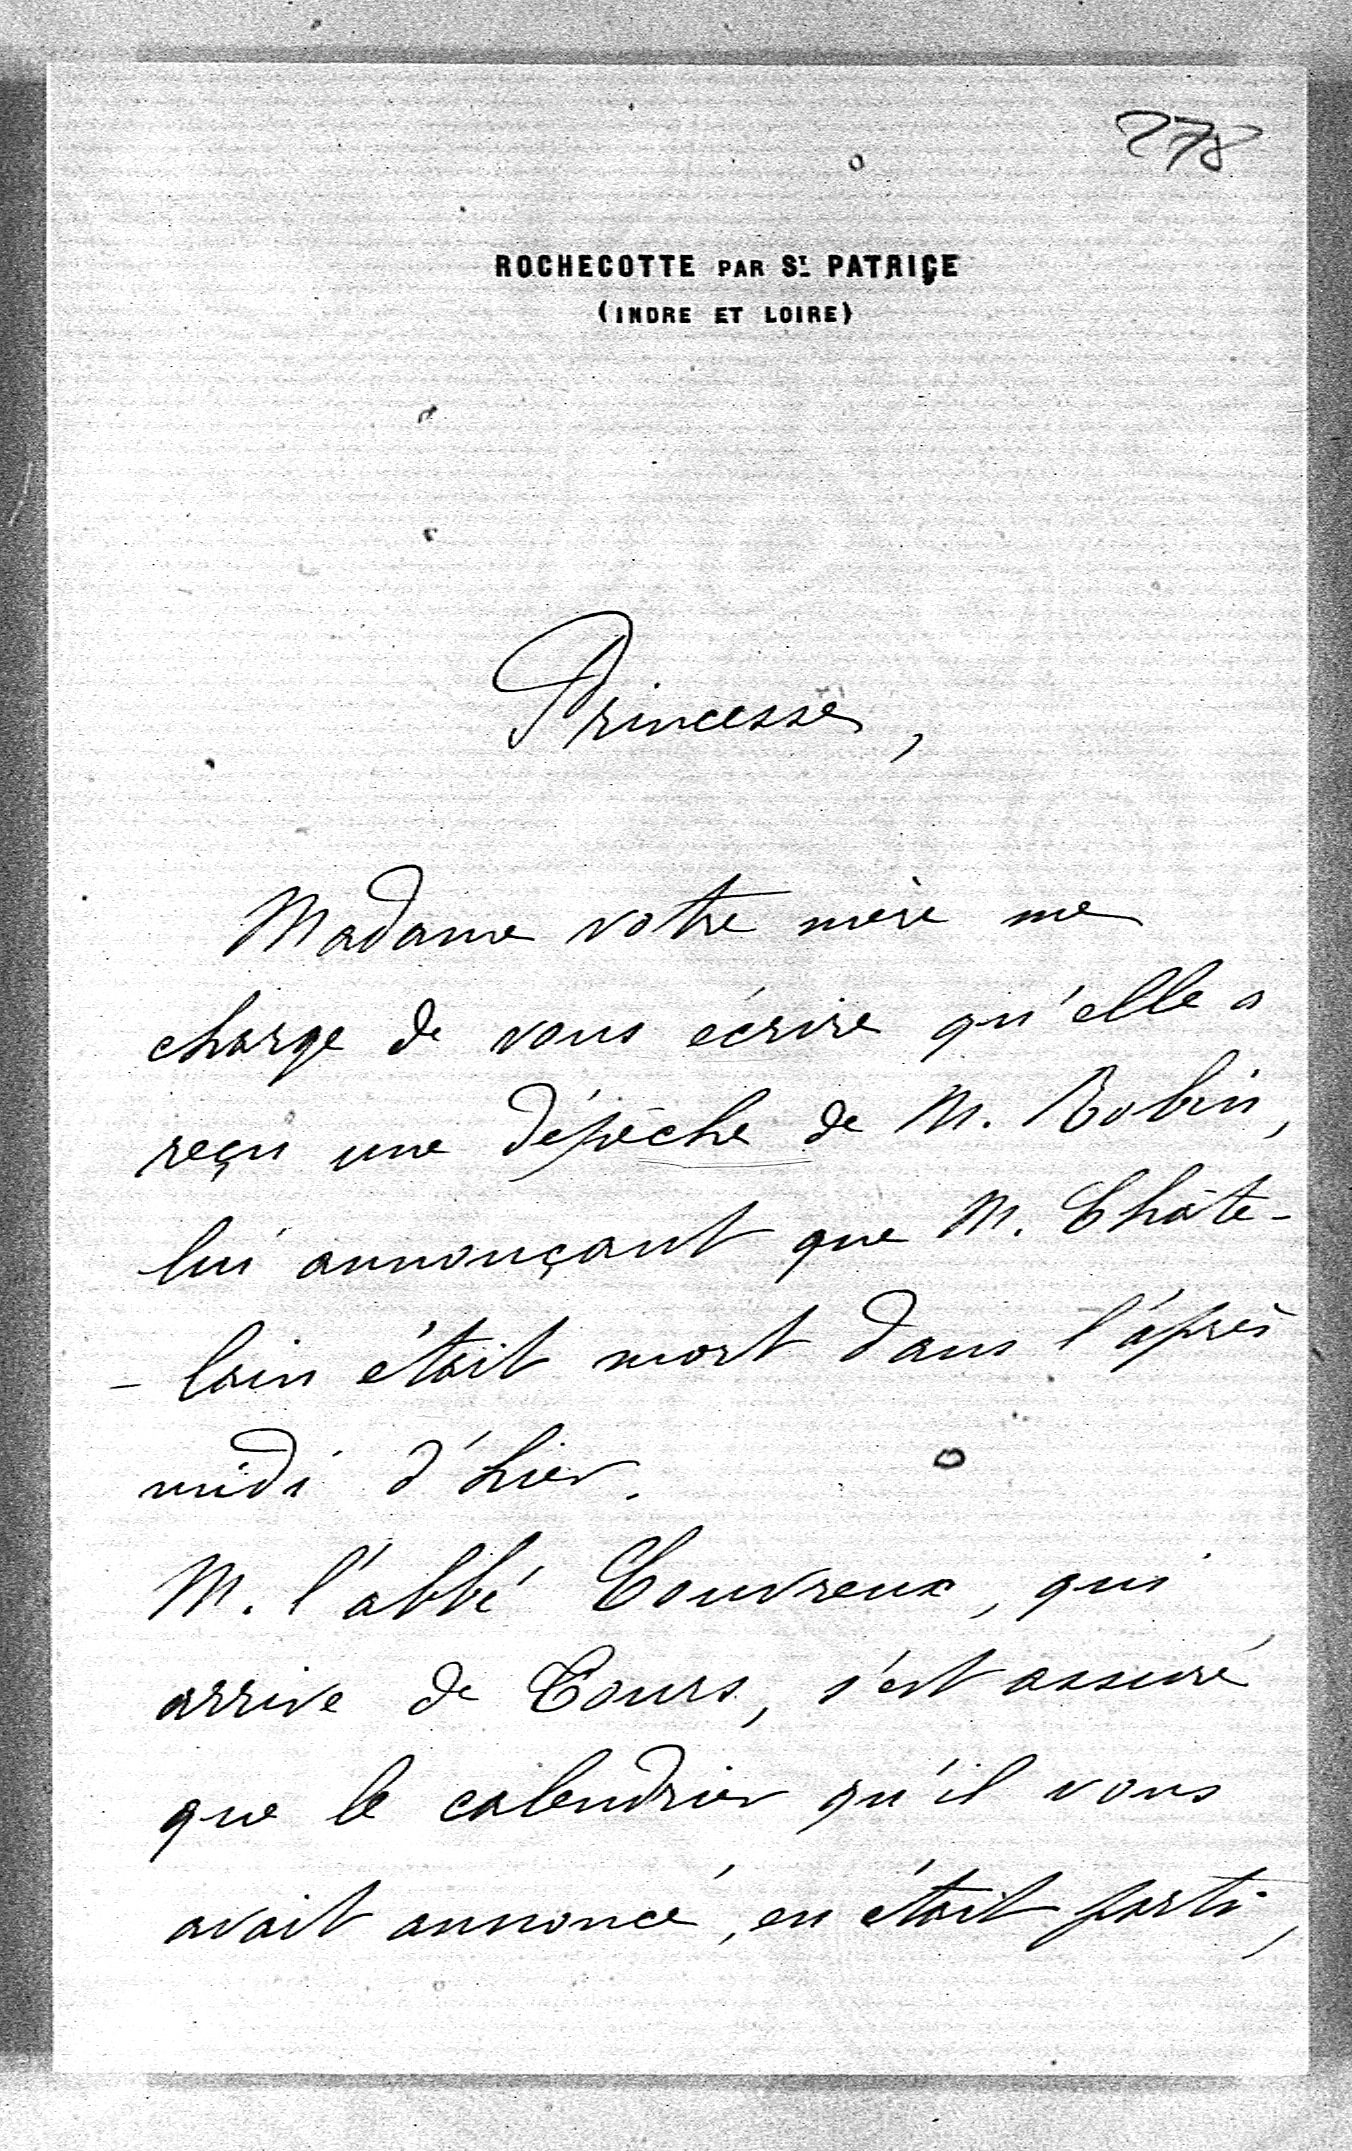 278
ROCHECOTTE PAR ST PATRIÇE
(INDRE ET LOIRE)
Princesse,
Madame votre mère me
charge de vous écrire qu'elle a
reçu une dépêche de M. Robin,
lui annonçant que M. Châte-
- lain était mort dans l'après
midi d'hier.
M. l'abbé Couvreux, qui
arrive de Tours, s'est assuré
que le calendrier qu'il vous
avait annoncé, en était parti,